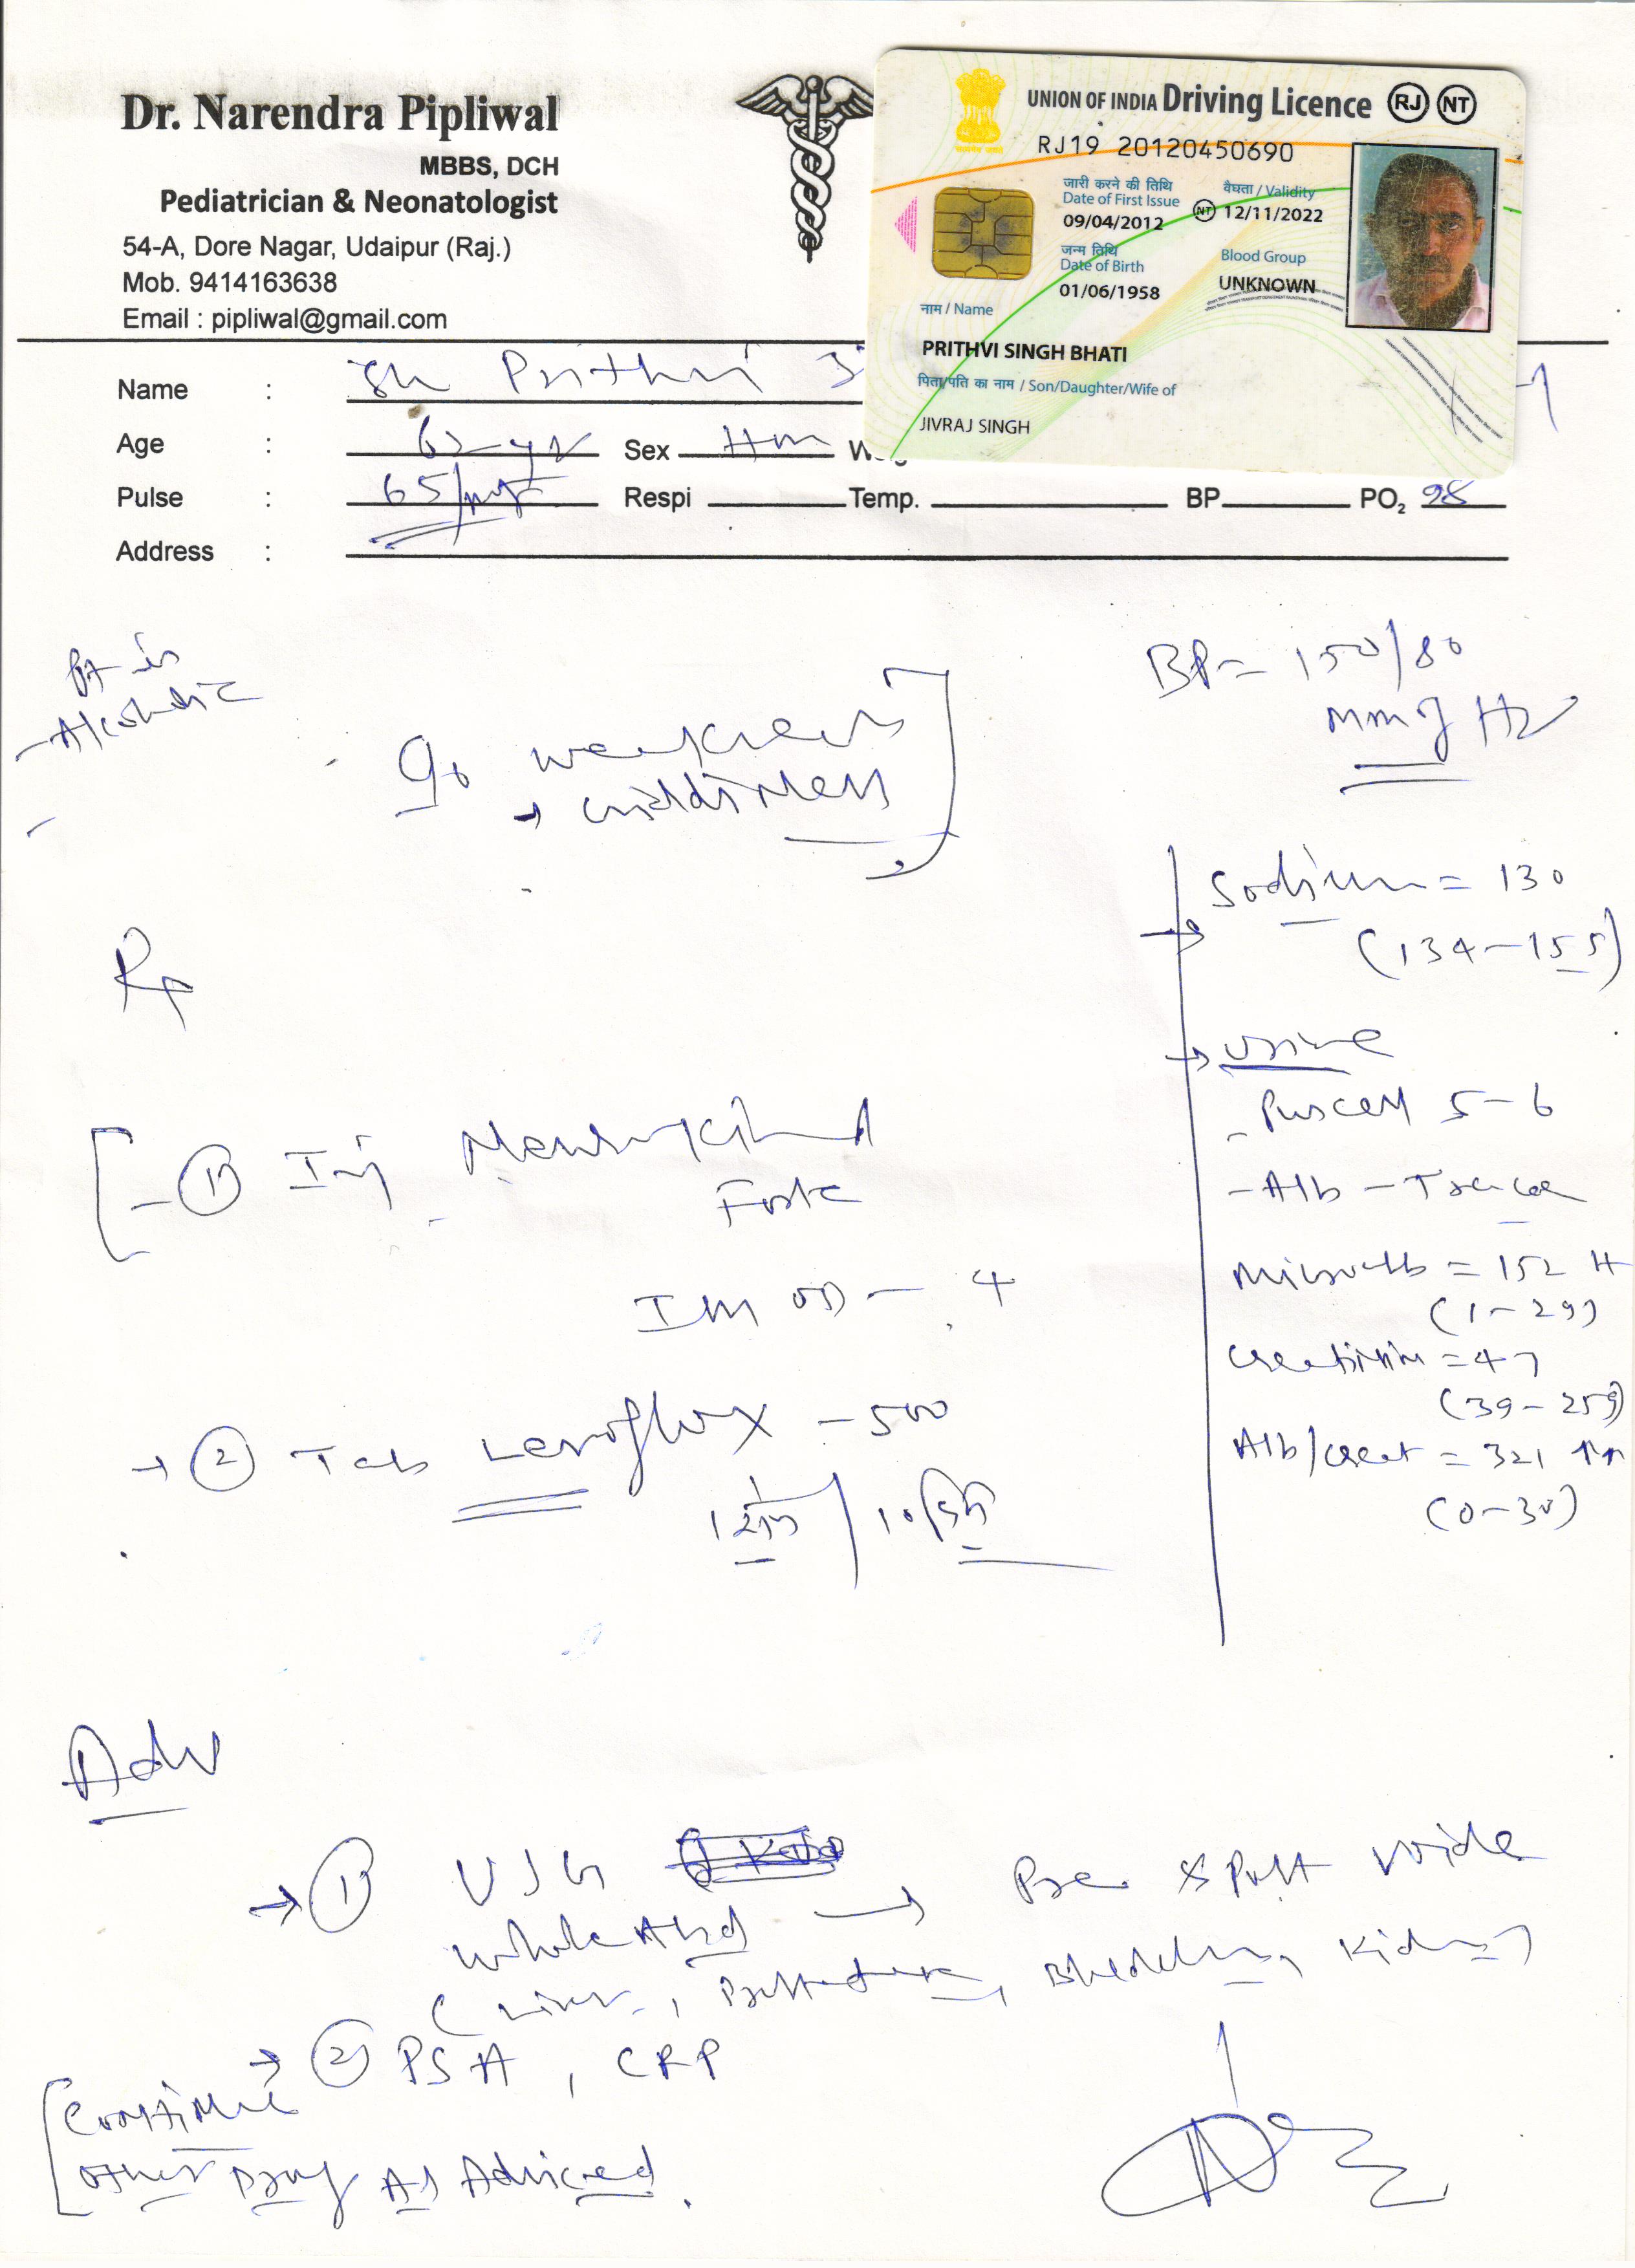 Dr. Narendra Pipliwal
MBBS, DCH
Pediatrician & Neonatologist
54-A, Dore Nagar, Udaipur (Raj.)
Mob. 9414163638
Email : pipliwal@gmail.com
UNION OF INDIA Driving Licence RJ NT
RJ19 20120450690
जारी करने की तिथि
Date of First Issue
09/04/2012
वैधता / Validity
NT 12/11/2022
जन्म तिथि
Date of Birth
01/06/1958
Blood Group
UNKNOWN
नाम / Name
PRITHVI SINGH BHATI
पिता/पति का नाम / Son/Daughter/Wife of
JIVRAJ SINGH
Name : Sh Prithvi
Age : 62 yr Sex
Pulse : 65/mt Respi Temp. BP PO2 98
Address :
Pt is
Alcoholic
BP = 150/80
mm of Hg
C/o weakness
giddiness
Sodium = 130
(134-155)
Rx
Urine
- Puscell 5-6
- Alb - Trace
Microalb = 152 H
(1-29)
Creatinin = 47
(39-259)
Alb/creat = 321 ↑↑
(0-30)
① Inj Neurokind
Forte
IM OD - 4
② Tab Levoflox - 500
Adv
① USG
whole Abd → Pre & Post void
(Liver, Prostate, Bladder, Kidney)
② PSA, CRP
Continue
other Drug As Adviced.